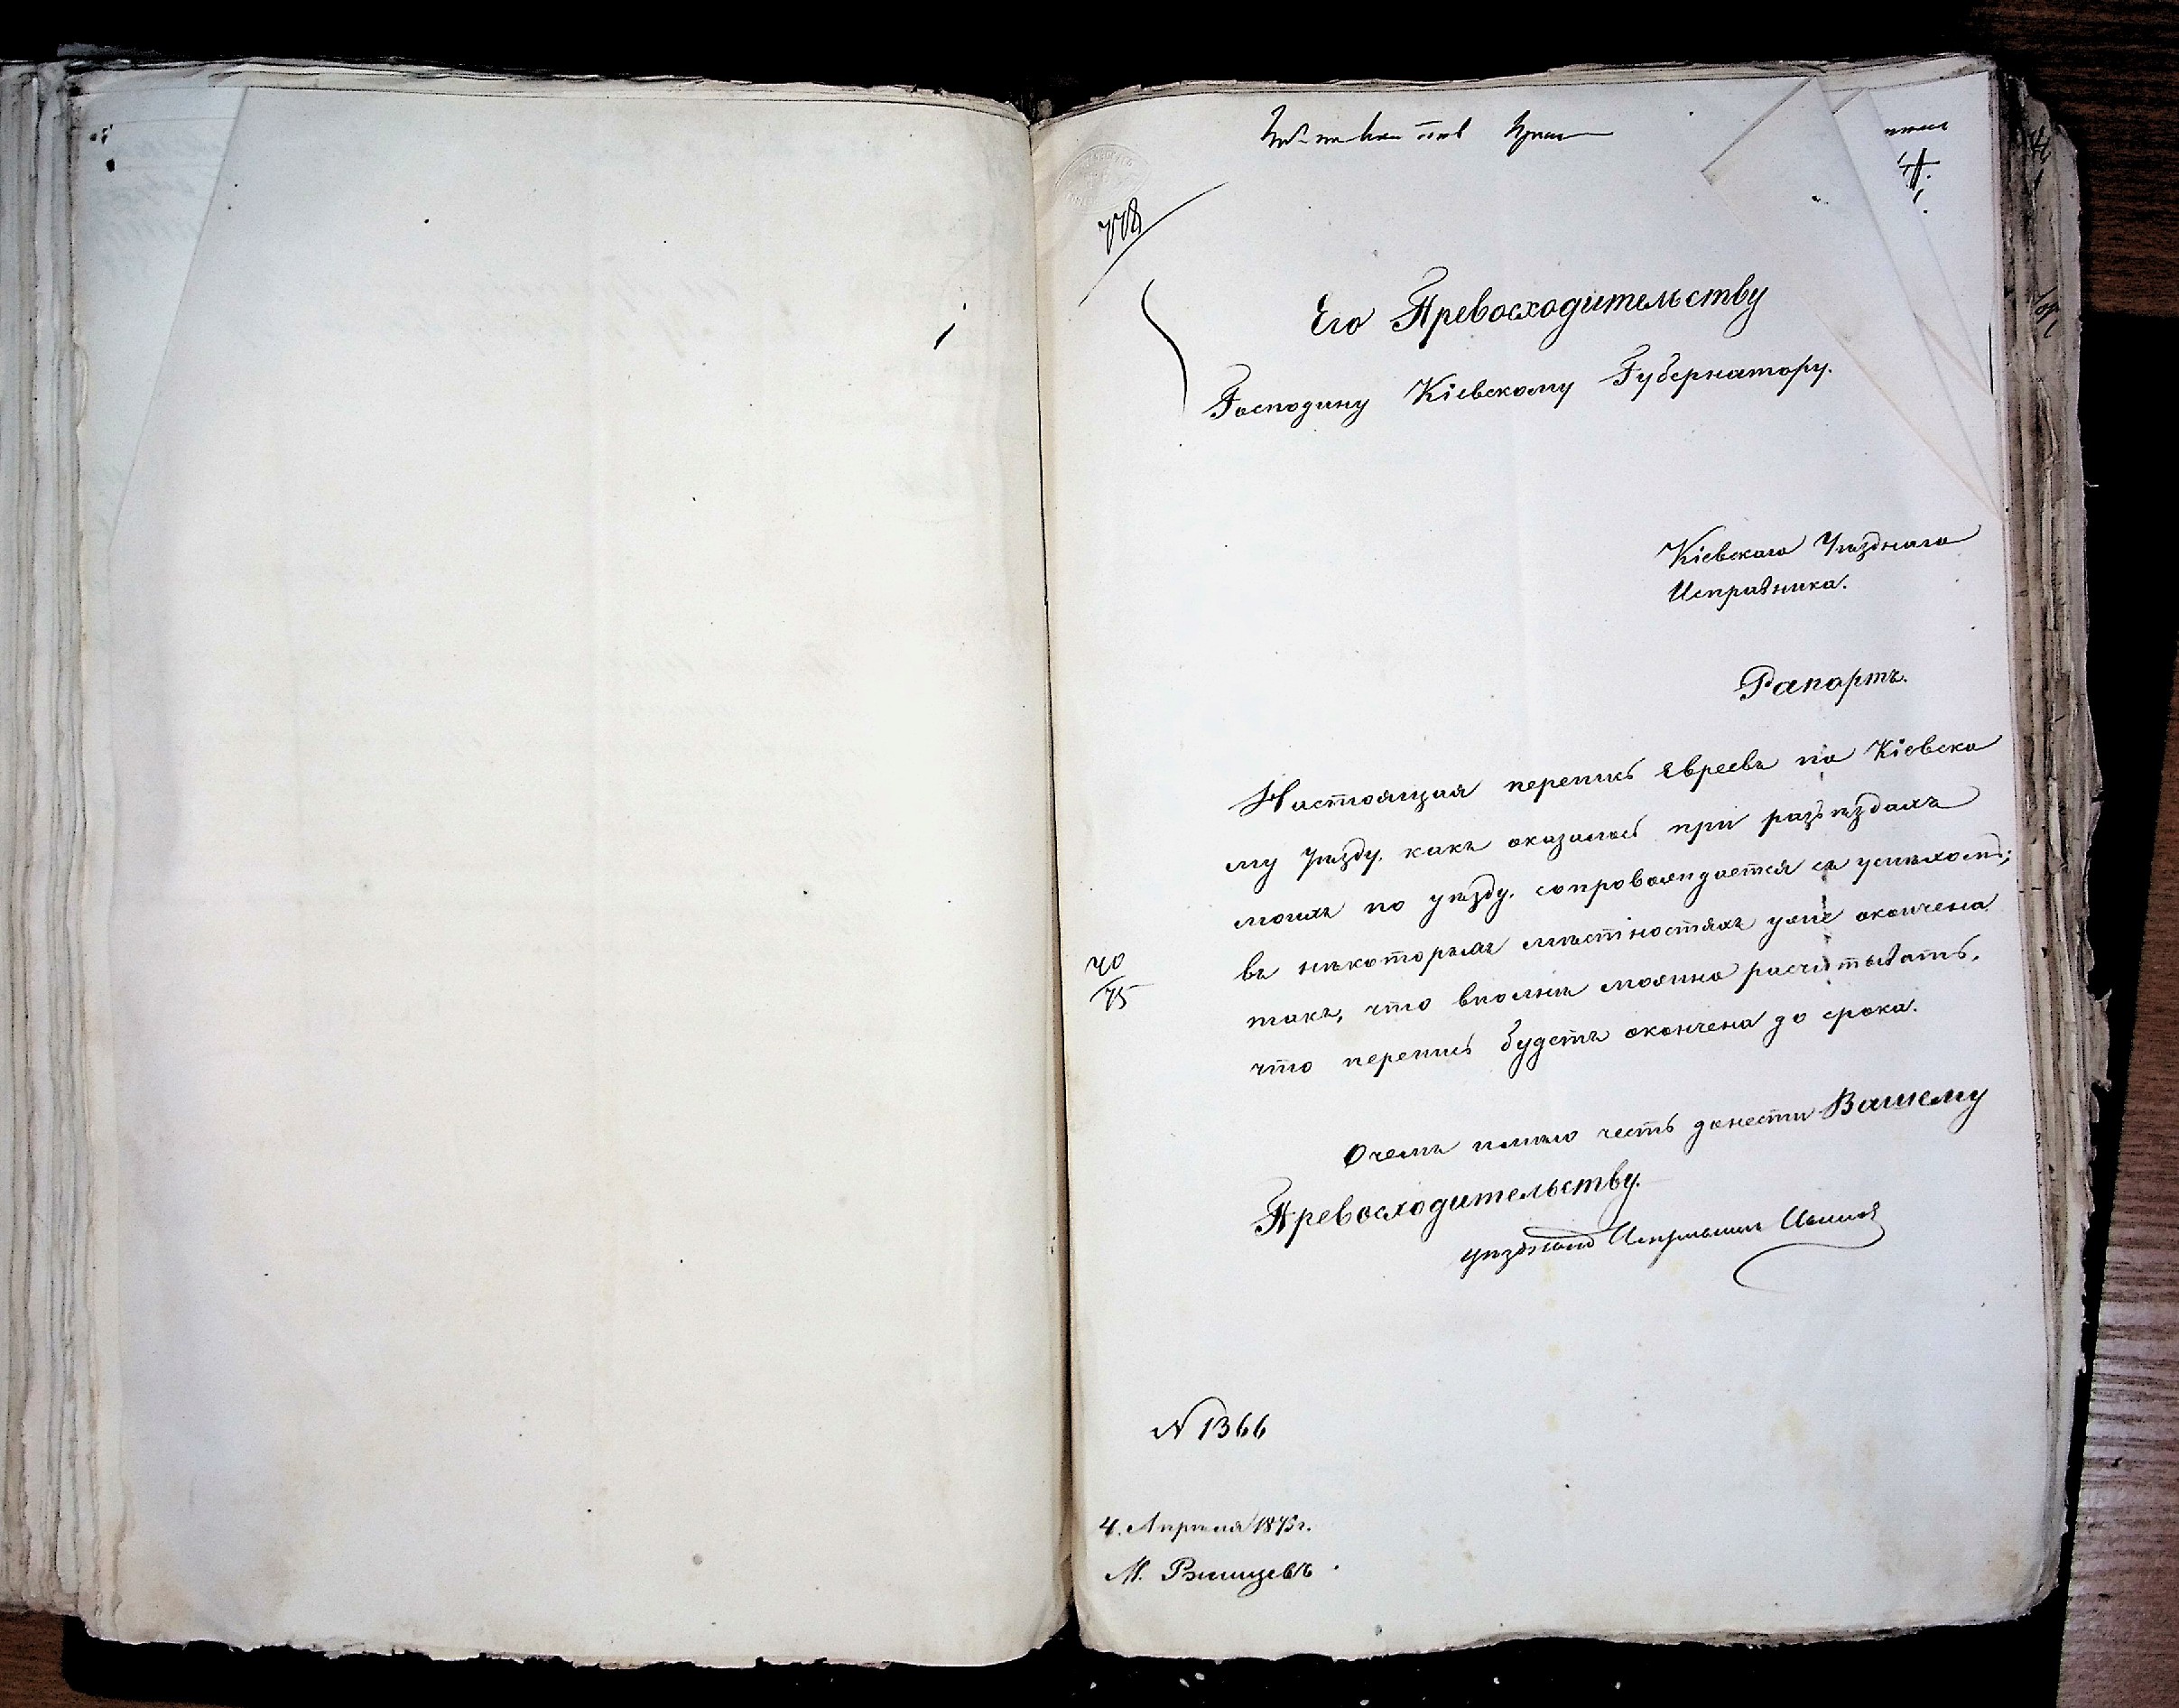 778
Его Превосходительству
Господину Кіевскому Губернатору.
Кіевскаго Уѣзднаго
Исправника.
Рапортъ.
Настоящая перепись евреевъ по Кіевско
му уѣзду, какъ оказалось при разъѣздахъ
моихъ по уѣзду, сопровождается съ успѣхомъ;
въ нѣкоторыхъ мѣстностяхъ уже окончена
такъ, что вполнѣ можно расчитывать,
что перепись будетъ окончена до срока.
40
75
О чемъ имѣю честь донести Вашему
Превосходительству.
Уѣздный Исправникъ
N 1366
4. Апрѣля 1875 г.
М. Ржищевъ